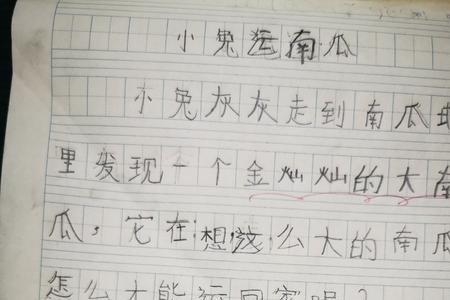 小兔运南瓜
小兔灰灰走到南瓜地
里发现一个金灿灿的大南
瓜，它在想：这么大的南瓜
怎么才能运回家呢？